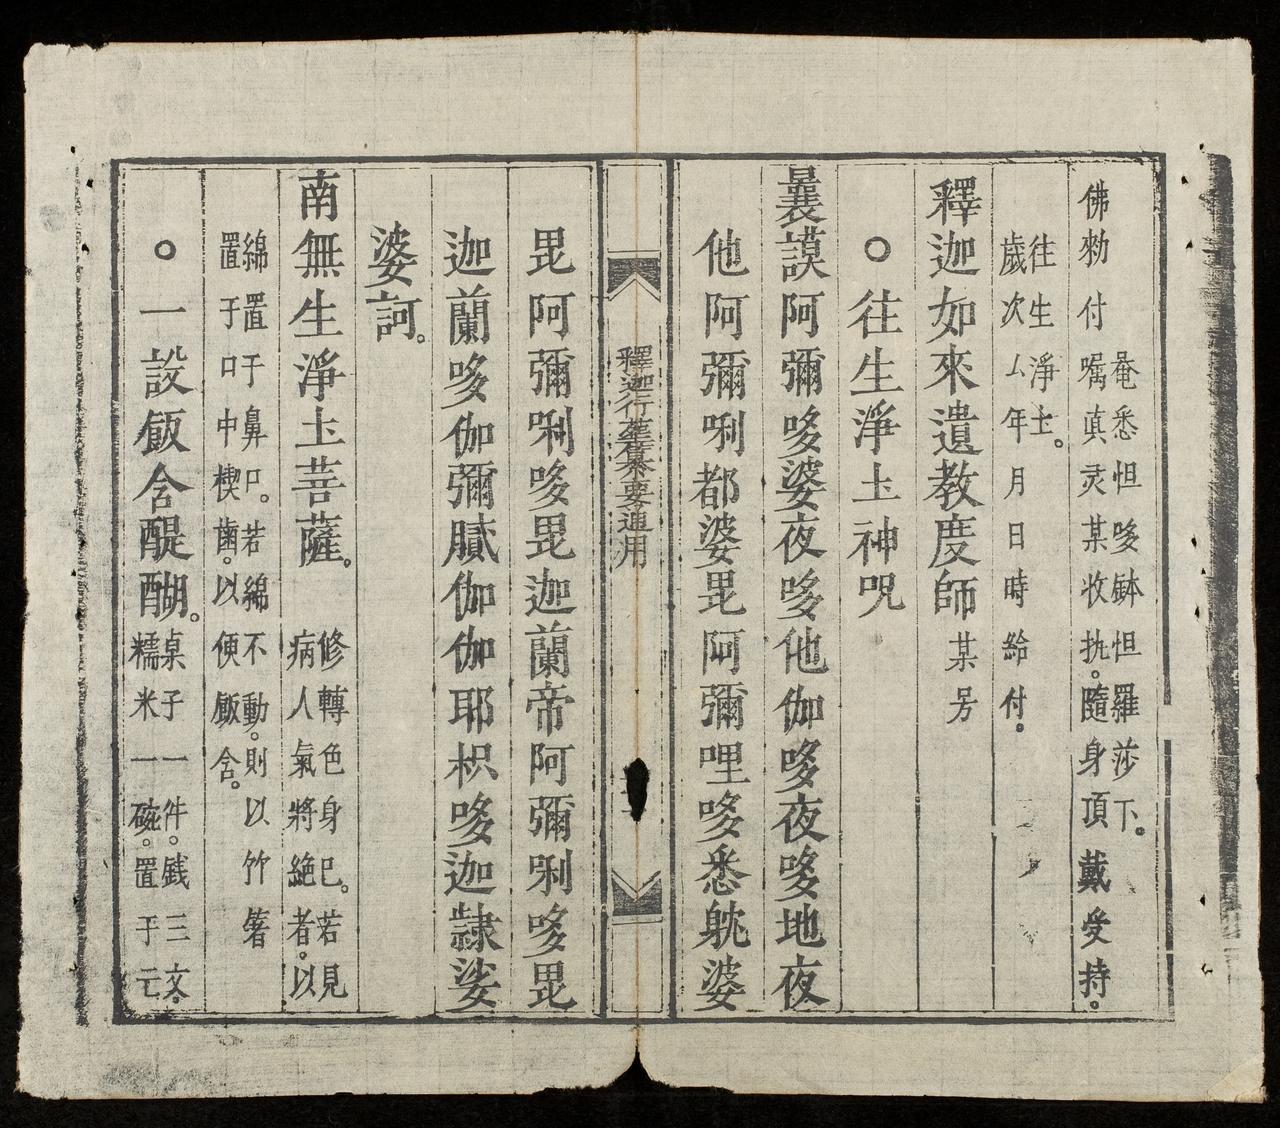 菴悉怛哆鉢怛羅莎下。
佛勑付嘱真灵某收执。隨身頂戴受持。
往生淨土。
歲次厶年月日時給付。
釋迦如來遺教度師某
○往生淨土神咒
曩謨阿彌哆婆夜哆他伽哆夜哆地夜
他阿彌唎都婆毘阿彌哩哆悉躭婆
釋迦行纂要通用
毘阿彌唎哆毘迦蘭帝阿彌唎哆毘
迦蘭哆伽彌膩伽伽耶枳哆迦隸娑
婆訶。
南無生淨土菩薩。
修轉色身巳。若見
病人氣將絶者。以
綿置于鼻口。若綿不動。則以竹箸
置于口中楔齒。以便飯含。
○一設飯含醍醐。
桌子一件。三文。
糯米一碗。置于元